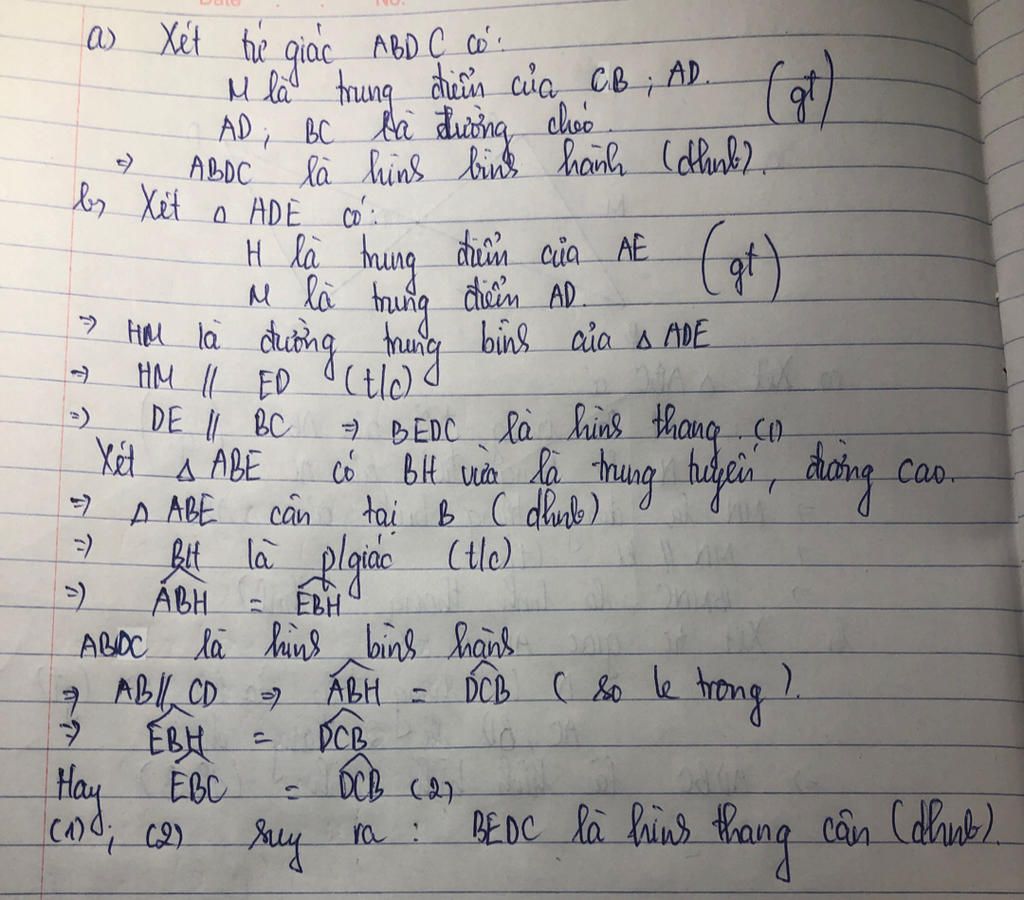 Date No.
a) Xét tứ giác ABDC có:
M là trung điểm của CB; AD. (gt)
AD; BC là đường chéo.
=> ABDC là hình bình hành (dhnb).
b, Xét △ ADE có:
H là trung điểm của AE (gt)
M là trung điểm AD.
=> HM là đường trung bình của △ ADE
=> HM // ED (t/c)
=> DE // BC => BEDC là hình thang. (1)
Xét △ ABE có BH vừa là trung tuyến, đường cao.
=> △ ABE cân tại B (dhnb)
=> BH là p/giác (t/c)
=> ABH = EBH
ABDC là hình bình hành
=> AB // CD => ABH = DCB (so le trong).
=> EBH = DCB
Hay EBC = DCB (2)
(1); (2) suy ra: BEDC là hình thang cân (dhnb).